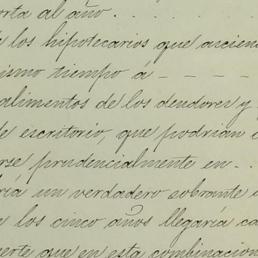 orta al año. . . . .
e los hipotecarios que ascien
ismo tiempo á - - - -
alimentos de los deudores y
de escritorio, que podrian
rse prudencialmente en - .
ría un verdadero sobrante
los cinco años llegaría ca
uerte que en esta combinacion